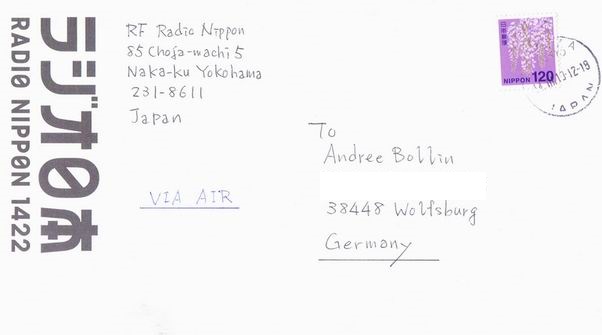 ラジオ日本
RADIO NIPPON 1422
RF Radio Nippon
85 Choja-machi 5
Naka-ku Yokohama
231-8611
Japan
VIA AIR
NIPPON 120
JAPAN
To
Andree Bollin
38448 Wolfsburg
Germany